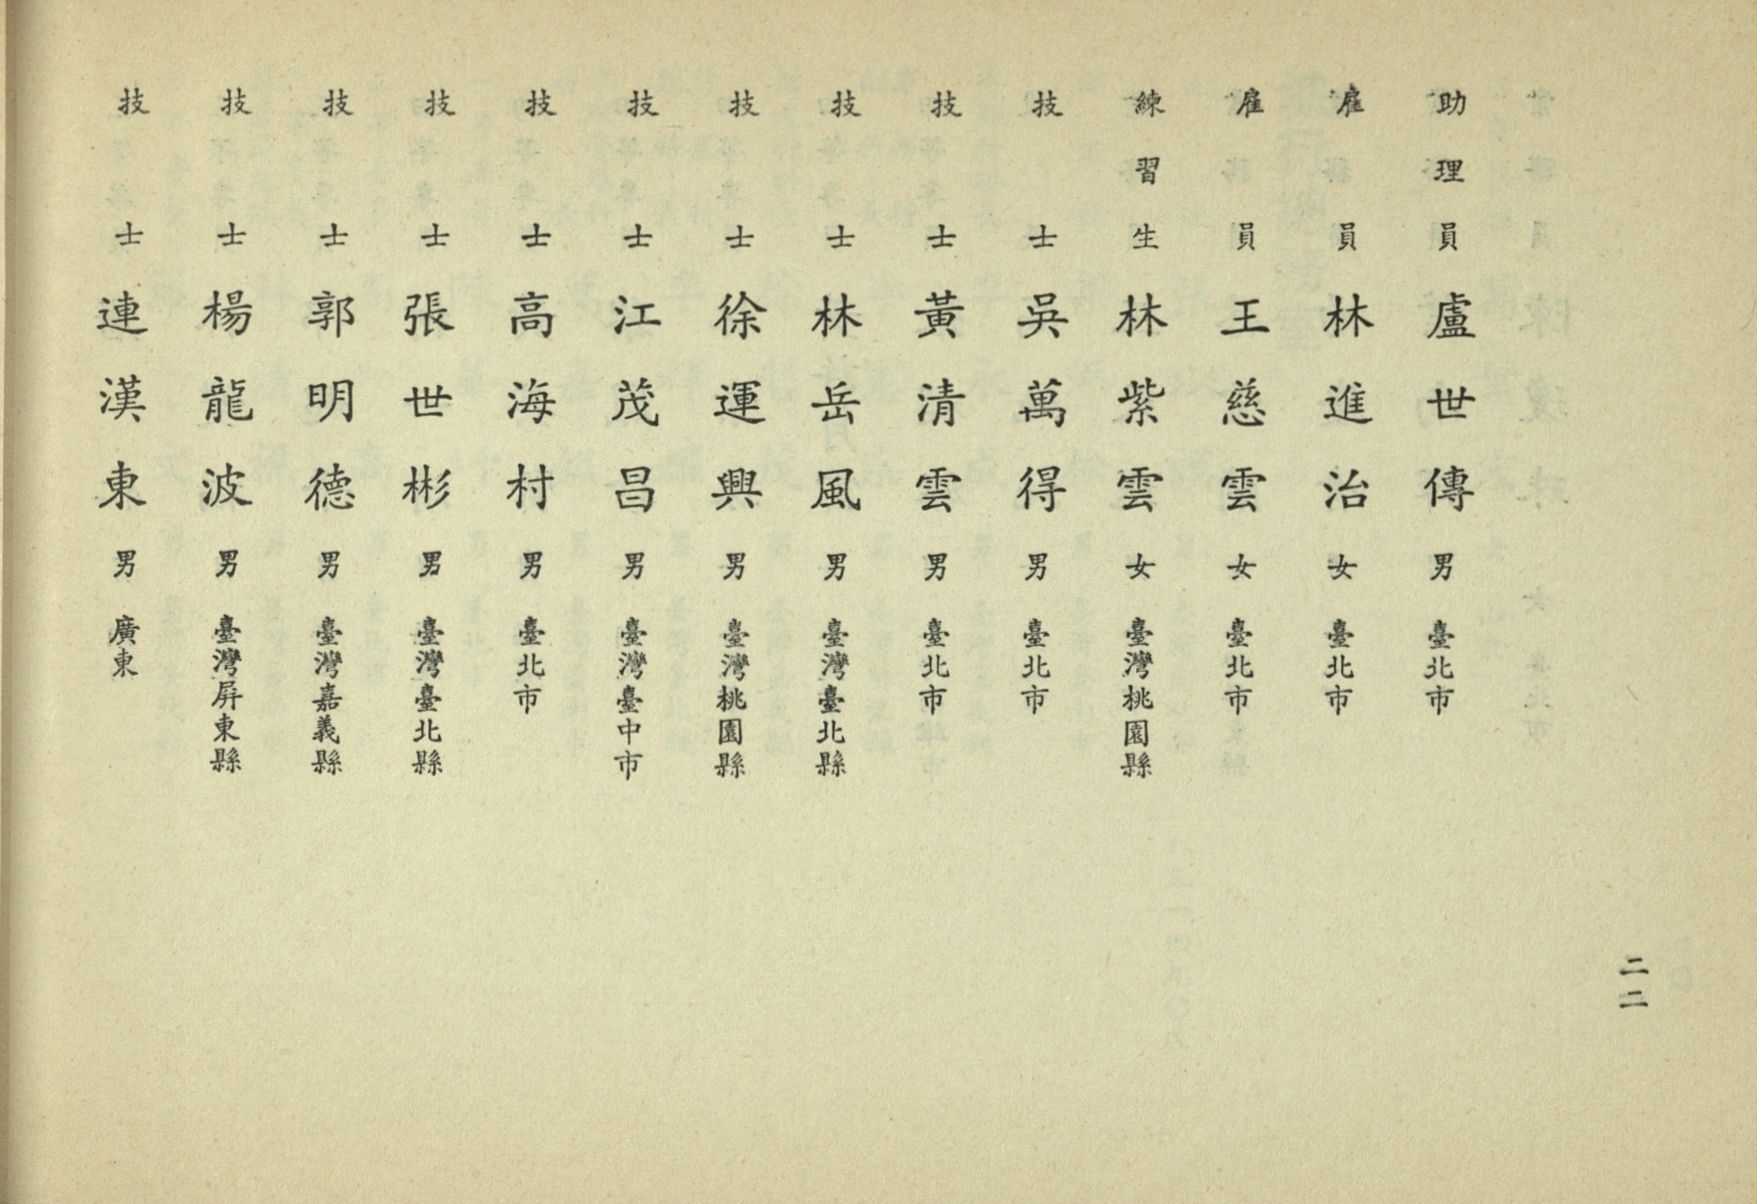 二二
助理員盧世傳男臺北市
雇員林進治女臺北市
雇員王慈雲女臺北市
練習生林紫雲女臺灣桃園縣
技士吳萬得男臺北市
技士黃清雲男臺北市
技士林岳風男臺灣臺北縣
技士徐運興男臺灣桃園縣
技士江茂昌男臺灣臺中市
技士高海村男臺北市
技士張世彬男臺灣臺北縣
技士郭明德男臺灣嘉義縣
技士楊龍波男臺灣屏東縣
技士連漢東男廣東